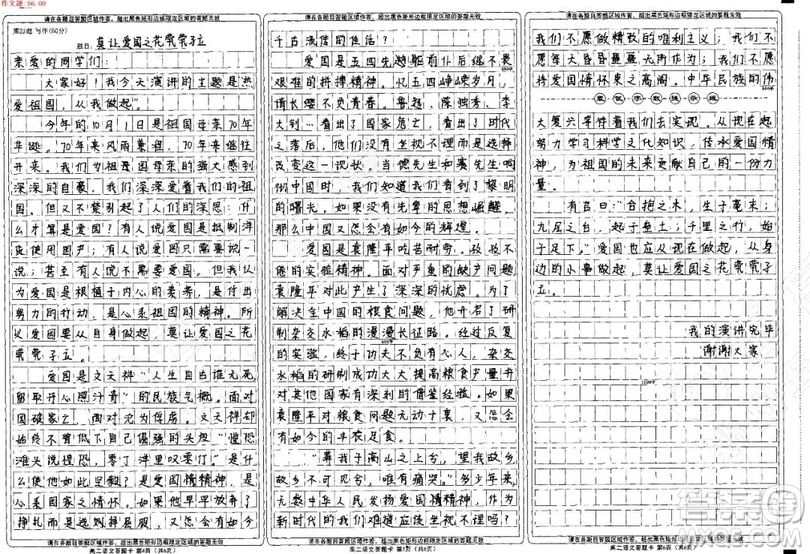 作文题:56.00
请在各题目答题区域作答，超出黑色矩形边框限定区域的答题无效
第22题 写作(60分)
题目：莫让爱国之花茕茕孑立
亲爱的同学们：
大家好！我今天演讲的主题是热
爱祖国，从我做起”。
今年的10月1日是祖国母亲70年
华诞。70年来风雨兼程，70年来继往
开来。我们为祖国母亲的强大感到
深深的自豪，我们深深爱着我们的祖
国。但又不禁引起了人们的深思：什
么才算是爱国？有人说爱国是抵制洋
货使用国产；有人说爱国只需要说一
说；甚至有人说不需要爱国。但我认
为爱国是根植于内心的素养，是付出
努力的行动，是心系祖国的精神。所
以爱国要从自身做起，莫让爱国之花
茕茕孑立。
爱国是文天祥“人生自古谁无死，
留取丹心照汗青”的民族气概。面对
国破家亡，面对沦为俘虏。文天祥却
始终不曾低下自己倔强的头颅“惶恐
滩头说惶恐，零丁洋里叹零丁”是什
么使他如此坚毅？是爱国情精神，是
心系国家之情怀。如果他早早放弃了
挣扎而是选择归顺享乐，又怎会有如今
请在各题目答题区域作答，超出黑色矩形边框限定区域的答题无效
高二语文答题卡 第4页（共6页）
请在各题目答题区域作答，超出黑色矩形边框限定区域的答题无效
千古流传的佳话？
爱国是五四先驱躯有仆后继不畏
艰难的拼搏精神。忆五四峥嵘岁月，
请长缨不负青春。鲁迅，陈独秀，李
大钊…看出了国家危亡，看出了时代
之落后，他们没有坐视不理而是选择
改变这一现状。当德先生和赛先生响
彻中国时，我们知道我们看到了黎明
的曙光，如果没有先辈的思想崛醒，
那么中国又怎会有如今的辉煌。
爱国是袁隆平吃苦耐劳、孜孜不
倦的实验精神。面对严重的缺产问题
袁隆平对此产生了深深的忧虑。为了
解决全中国的粮食问题，他开了研
制杂交水稻的漫漫长征路。经过反复
的实验，终于功夫不负有心人，杂交
水稻的研制成功大大提高粮食产量并
对其他国家有深刻的借鉴意义。如果
袁隆平对粮食问题无动于衷，又怎会
有如今的丰衣足食。
“葬我于高山之上兮，望我故乡，
故乡不可见兮，唯有痛哭。”多少年来
无数中华人民发扬爱国情精神，作为
新时代的我们难道应该坐视不理吗？
请在各题目答题区域作答，超出黑色矩形边框限定区域的答题无效
高二语文答题卡 第5页（共6页）
请在各题目答题区域作答，超出黑色矩形边框限定区域的答题无效
我们不愿做精致的唯利主义；我们不
愿年大昏昏噩噩无所作为；我们不愿
待爱国情怀束之高阁。中华民族的伟
大复兴等待着我们去实现。从现在起
努力学习科学文化知识，传承爱国精
神，为祖国的未来贡献自己的一份力
量。
有言曰：“合抱之木，生于毫末；
九层之台，起于垒土；千里之行，始
于足下。”爱国也应从现在做起，从身
边的小事做起，莫让爱国之花茕茕孑
立。
我的演讲完毕
谢谢大家
请在各题目答题区域作答，超出黑色矩形边框限定区域的答题无效
高二语文答题卡 第6页（共6页）